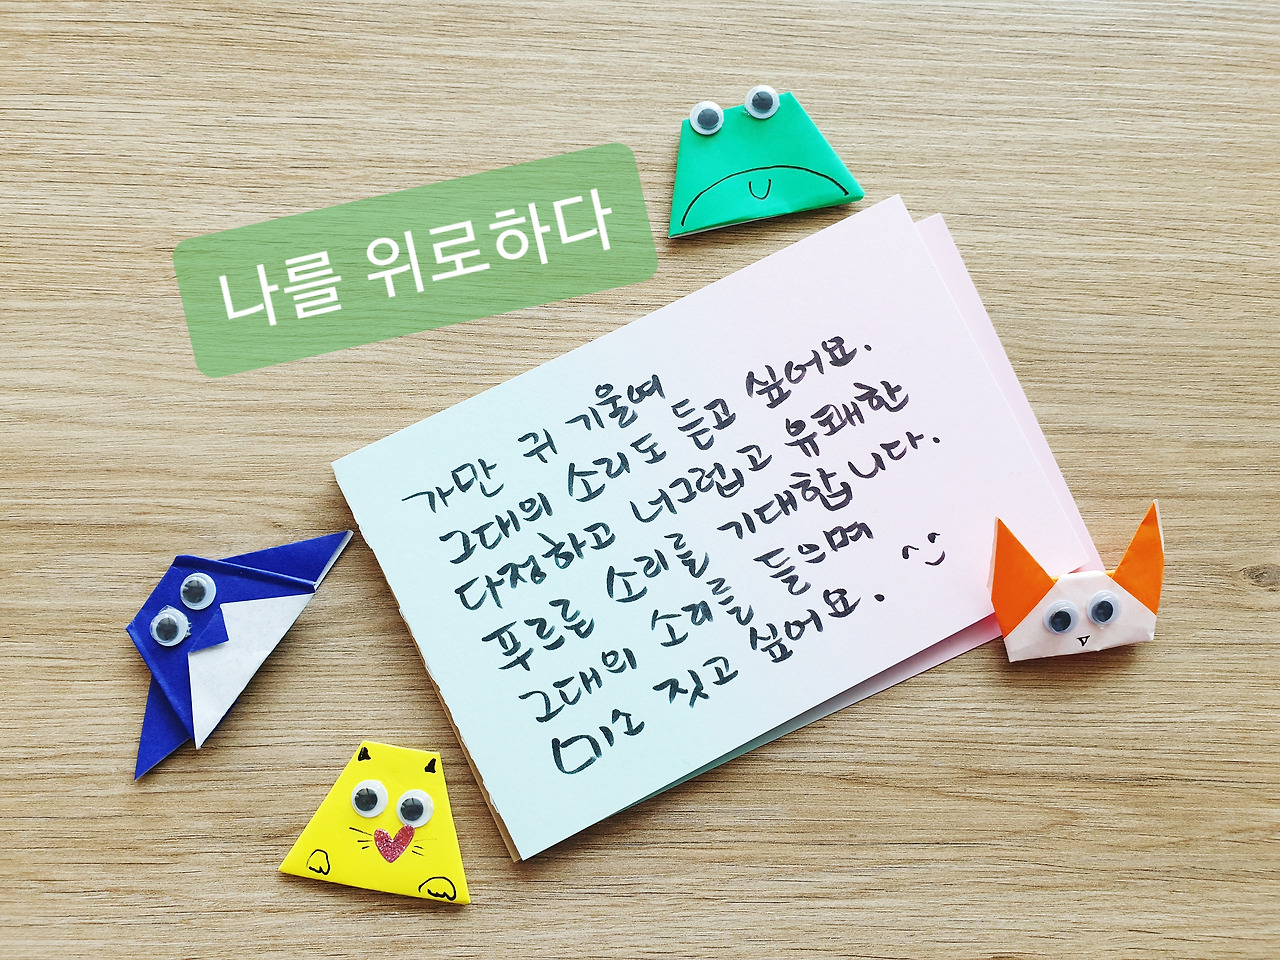 나를 위로하다
가만 귀 기울여
그대의 소리도 듣고 싶어요.
다정하고 너그럽고 유쾌한
푸르른 소리를 기대합니다.
그대의 소리를 들으며 ^^
미소 짓고 싶어요.